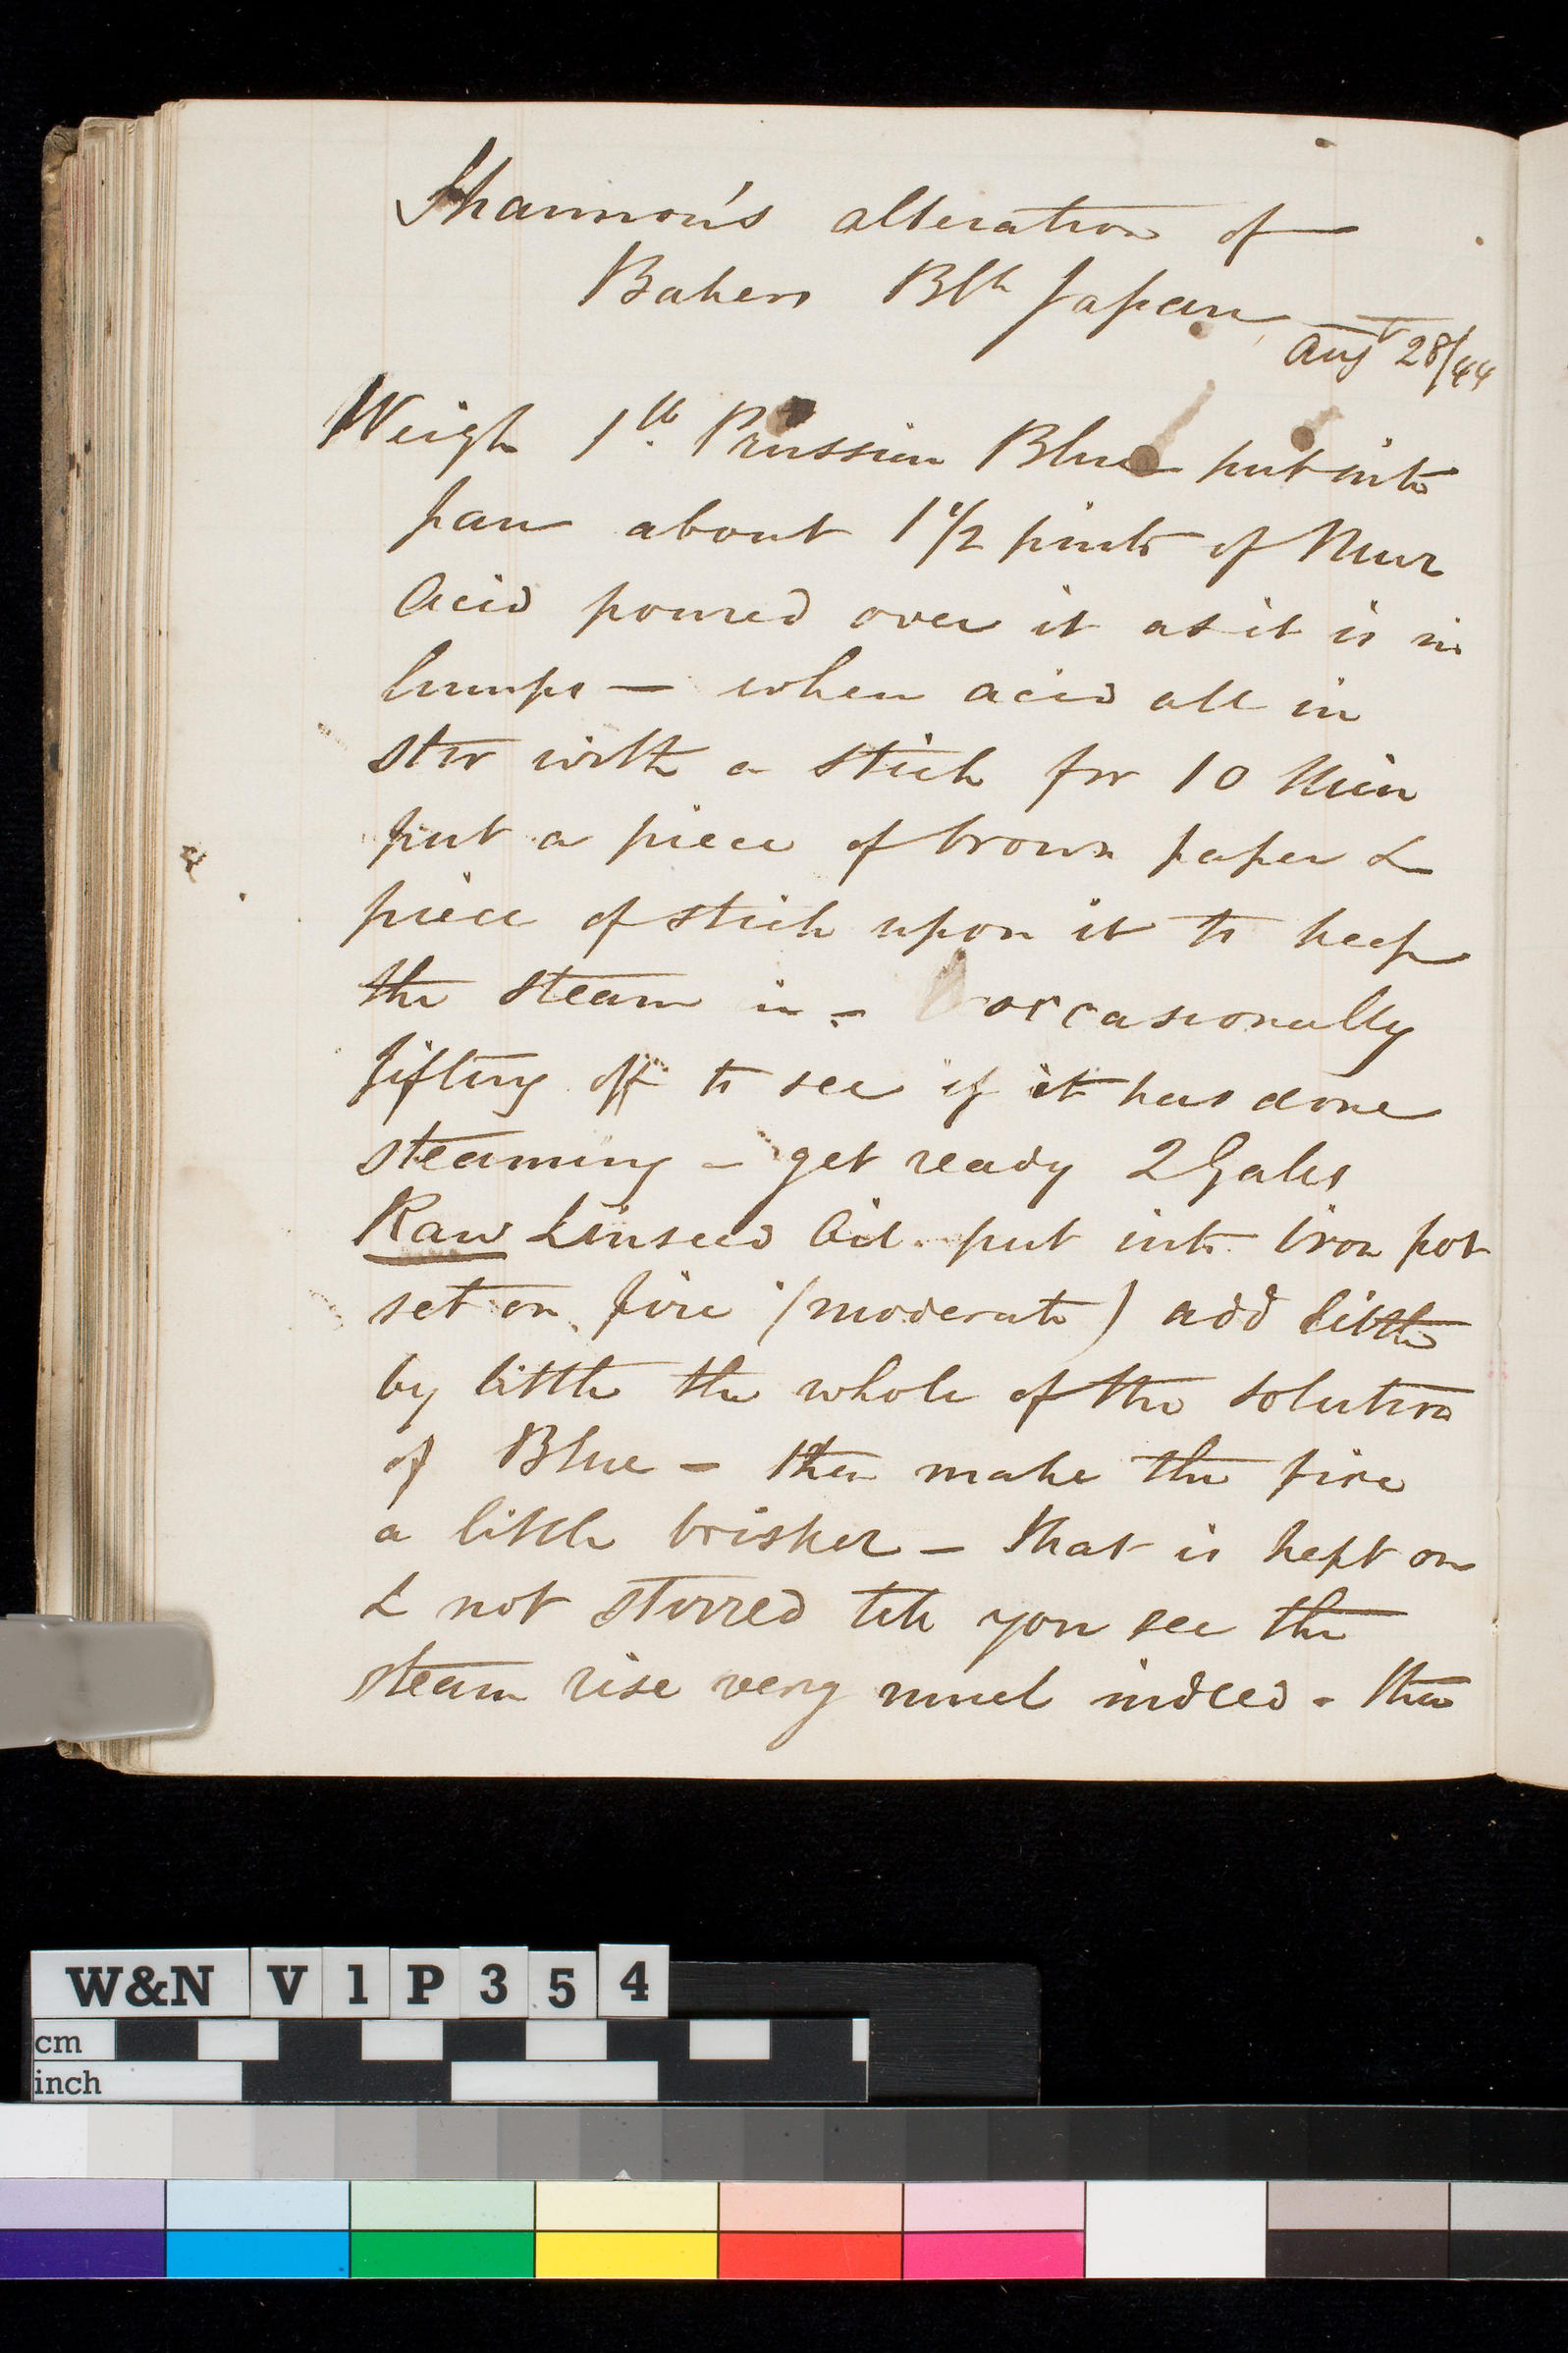 Shannon's alteration of
Bakers Blk Japan
Augt 28/44
Weigh 1lb. Prussian Blue put into
pan about 1 1/2 pints of Mur
Acid poured over it as it is in
lumps — when acid all in
stir with a stick for 10 Min
put a piece of brown paper &
piece of stick upon it to keep
the steam in - occasionally
lifting off to see if it has done
steaming - get ready 2 Galls
Raw Linseed Oil put into Iron pot
set on fire (moderate) add little
by little the whole of the solution
of Blue - then make the fire
a little brisker - that is kept on
& not stirred till you see the
steam rise very much indeed - then
W&N V1P354
cm
inch